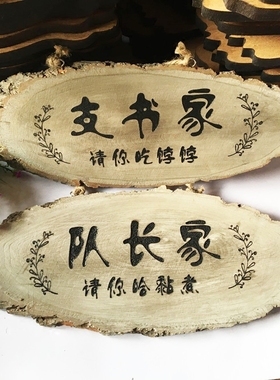 支书家
请你吃饽饽
队长家
请你哈黏煮